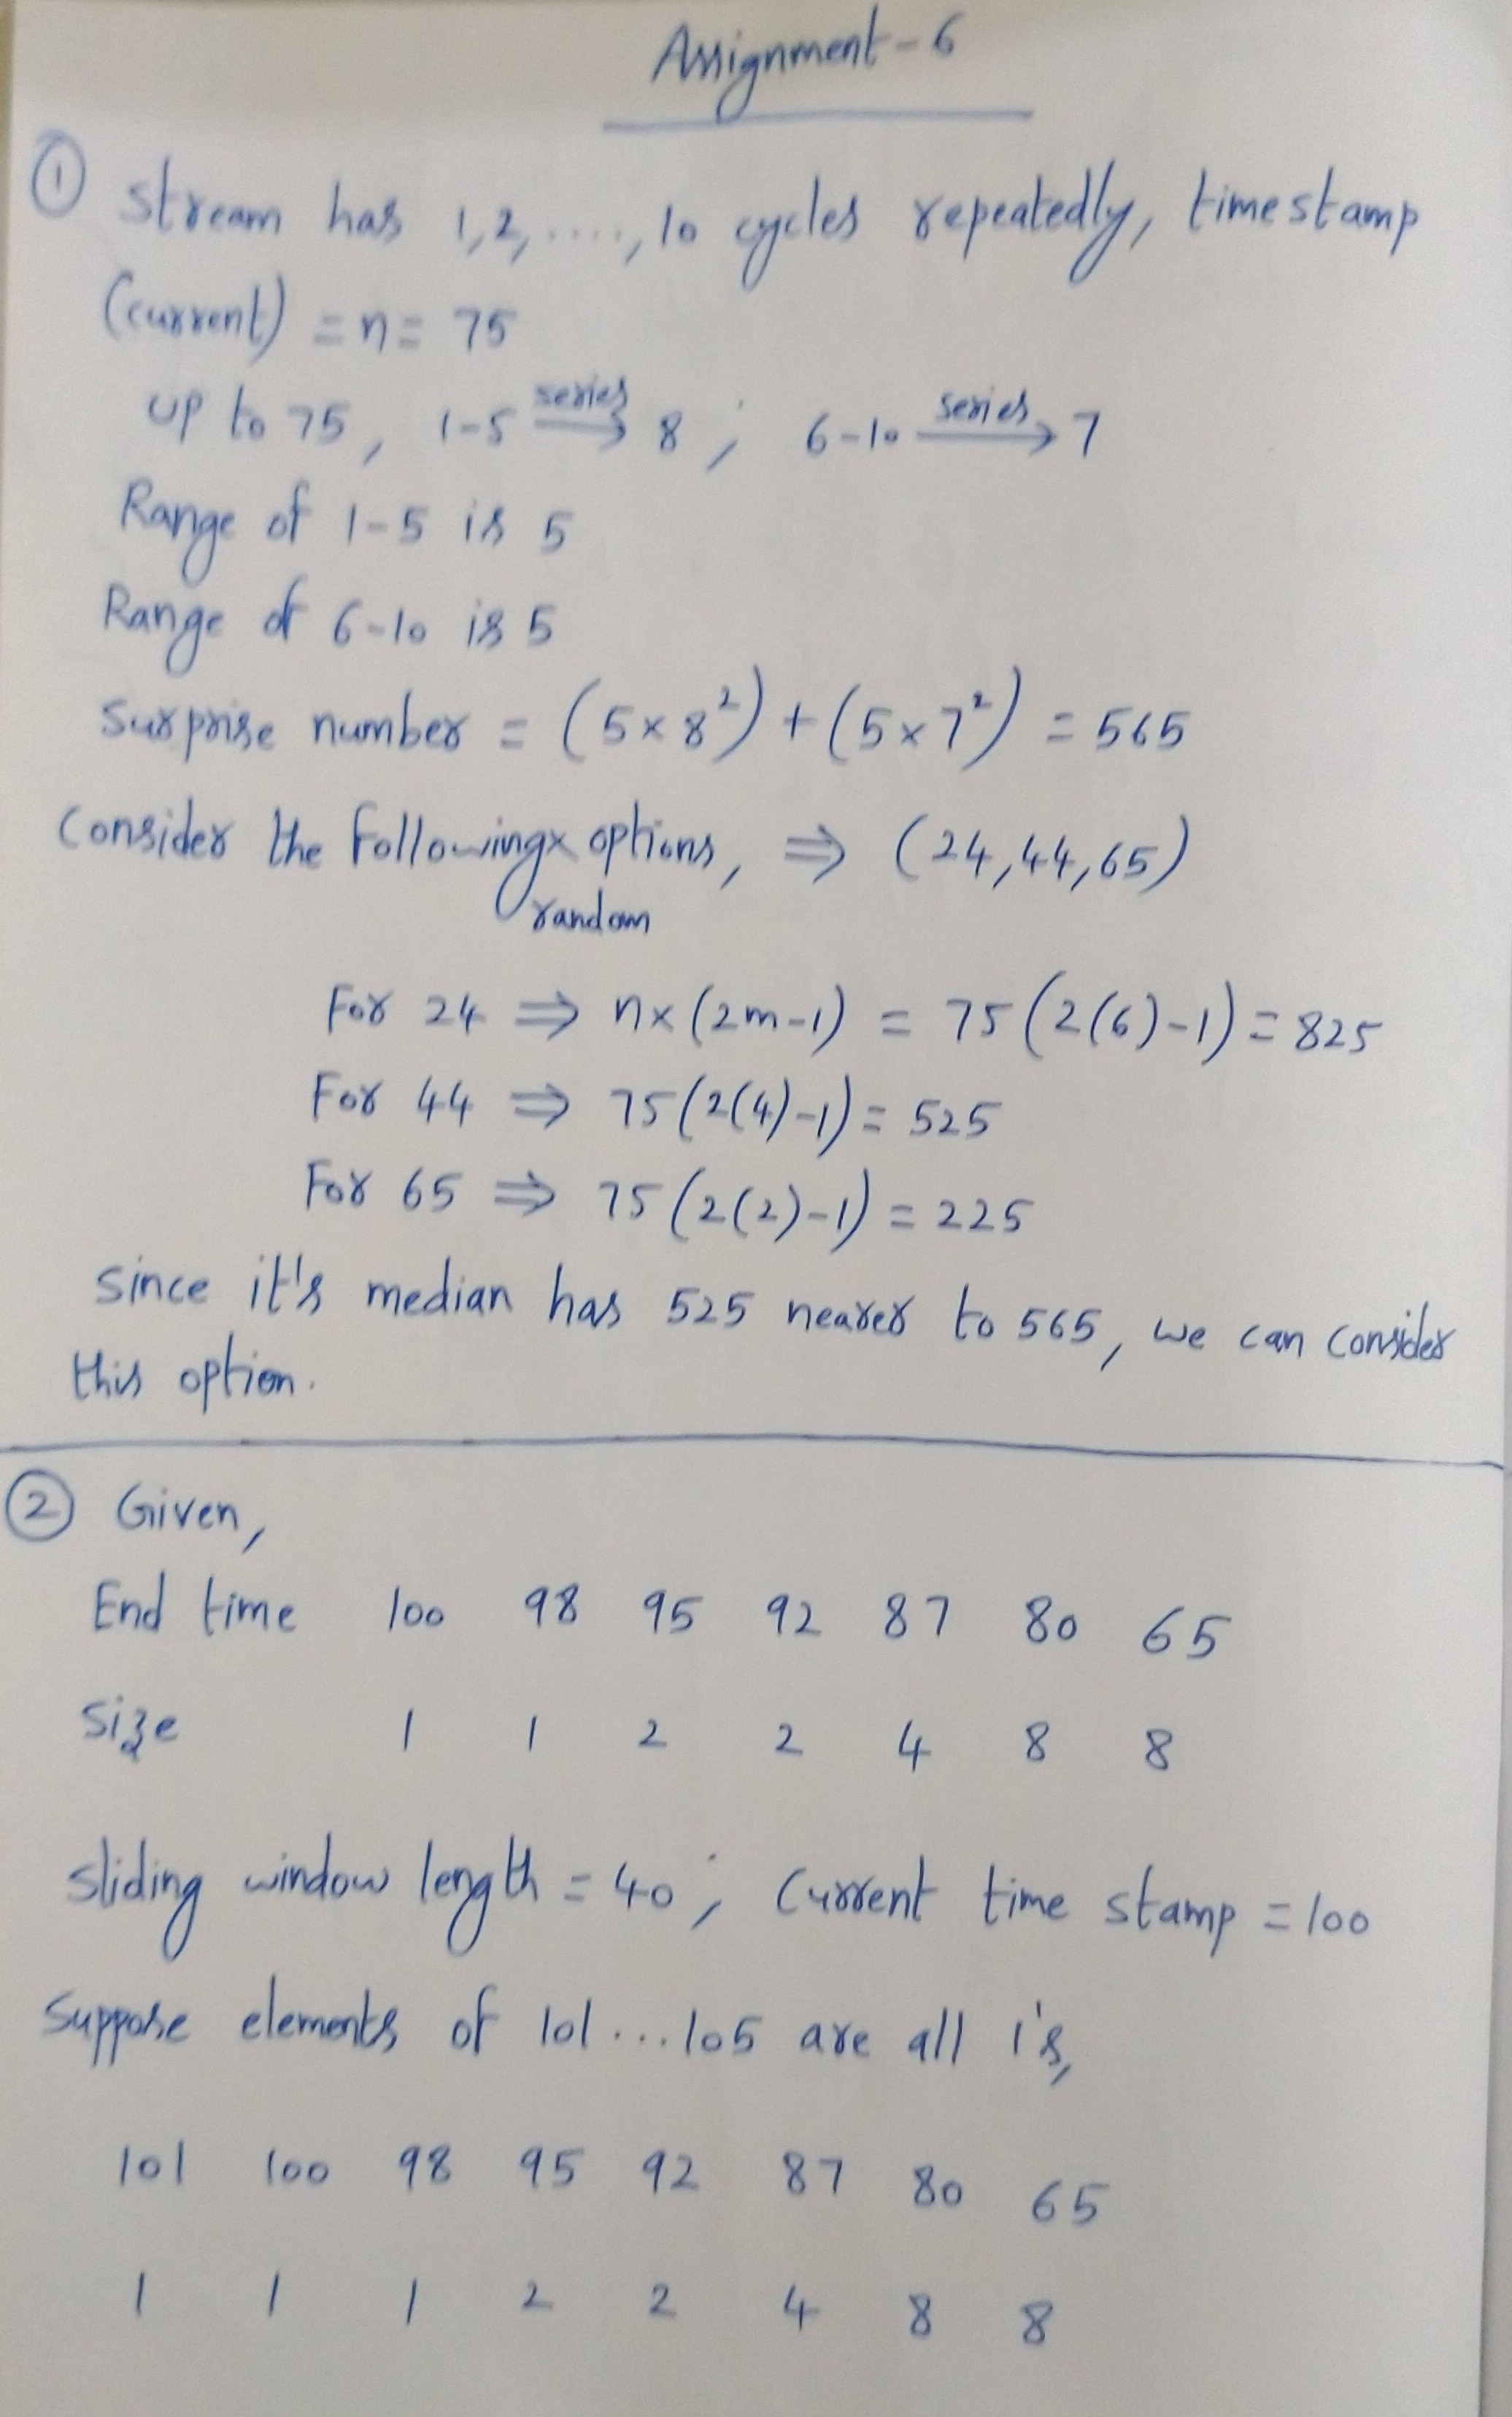 Assignment-6
① Stream has 1,2,....,10 cycles repeatedly, timestamp
(current) = n = 75
up to 75, 1-5 series→ 8 ; 6-10 series→ 7
Range of 1-5 is 5
Range of 6-10 is 5
Surprise number = (5×8²)+(5×7²) = 565
Consider the following random options, ⇒ (24,44,65)
For 24 ⇒ n×(2m-1) = 75(2(6)-1) = 825
For 44 ⇒ 75(2(4)-1) = 525
For 65 ⇒ 75(2(2)-1) = 225
since it's median has 525 nearer to 565, we can consider
this option.
② Given,
End time 100 98 95 92 87 80 65
size 1 1 2 2 4 8 8
sliding window length = 40 ; Current time stamp = 100
Suppose elements of 101...105 are all 1's,
101 100 98 95 92 87 80 65
1 1 1 2 2 4 8 8